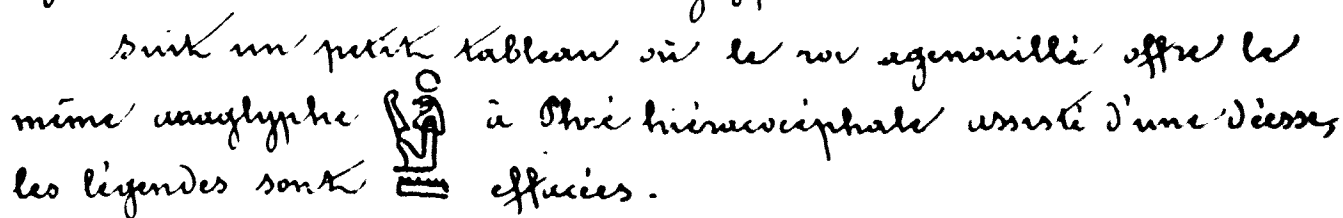 suit un petit tableau où le roi agenouillé offre le
même anaglyphe à Phré hiéracocéphale assisté d'une déesse,
les légendes sont effacées.